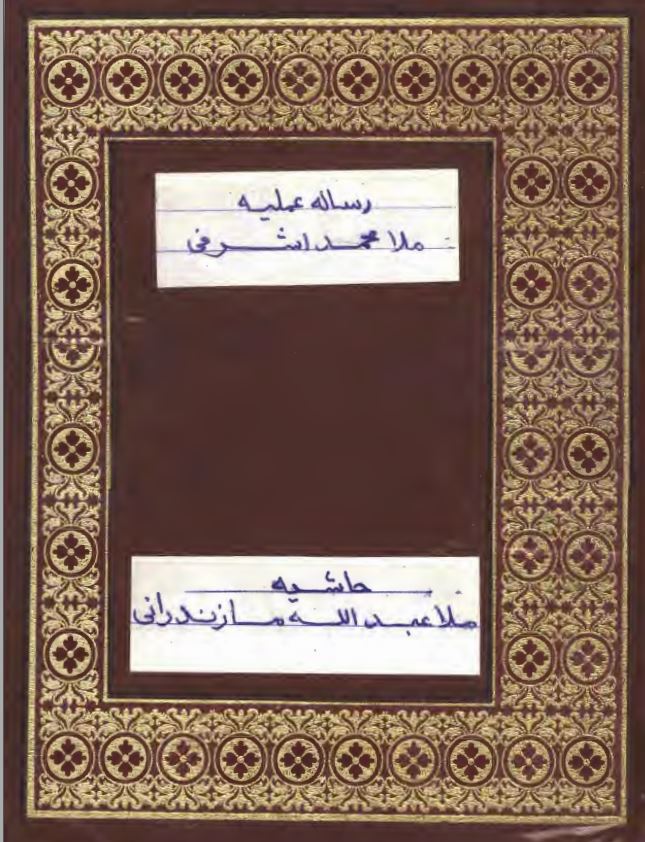 رساله عملیه
ملا محمد اشرفی
حاشیه
ملا عبد الله مازندرانی